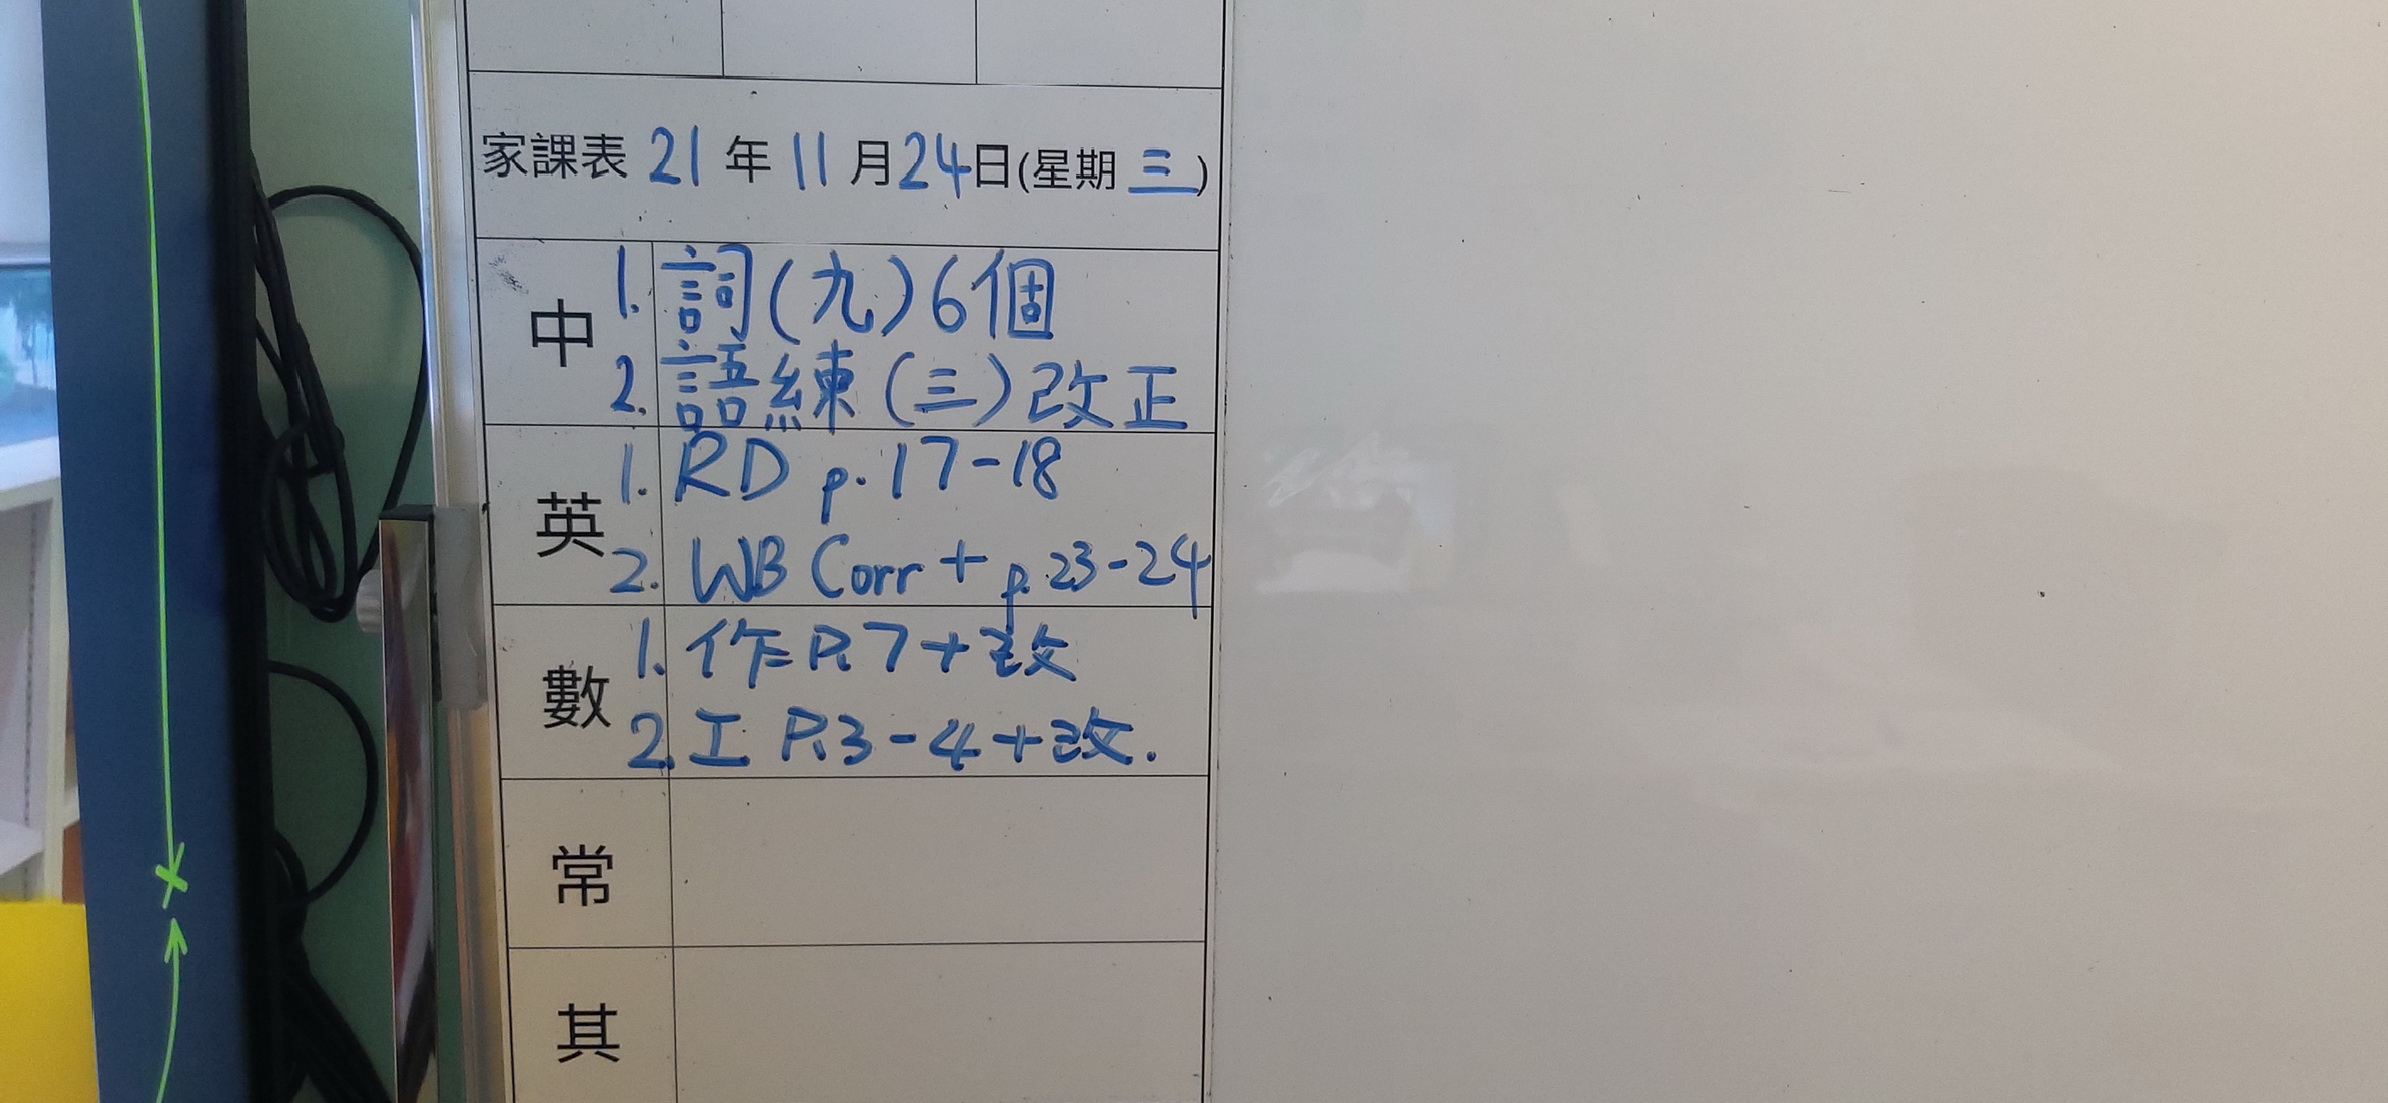 家課表 21 年 11 月 24 日(星期 三)
中
1. 詞(九)6個
2. 語練(三)改正
英
1. RD p.17-18
2. WB Corr + p.23-24
數
1. 作P.7+改
2. 工 P.3-4+改.
常
其